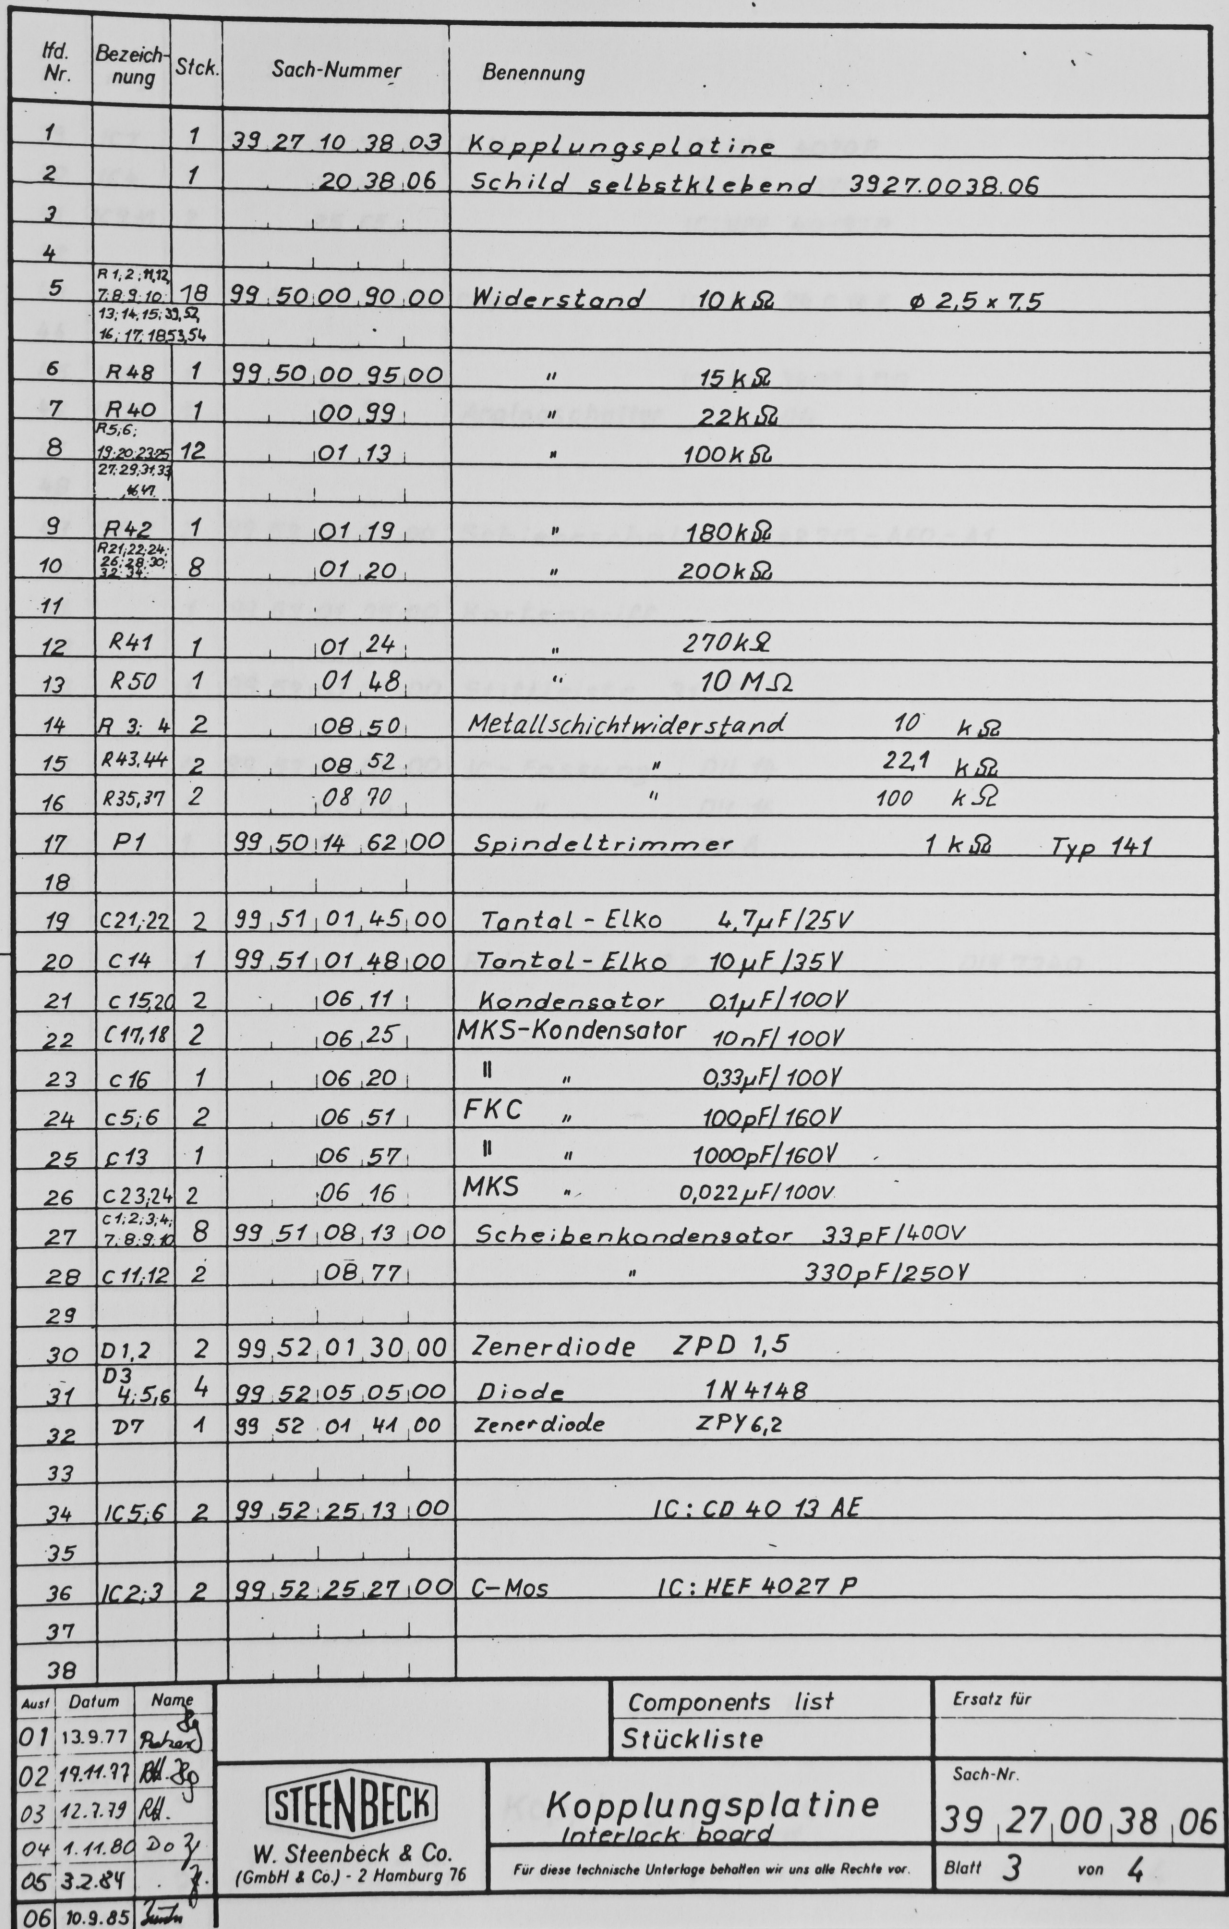 lfd. Nr. Bezeich-nung Stck. Sach-Nummer Benennung
1 1 39 27 10 38 03 Kopplungsplatine
2 1 20 38 06 Schild selbstklebend 3927.0038.06
3
4
5 R1;2;11,12, 7;8;9;10; 18 99 50 00 90 00 Widerstand 10kΩ ø 2,5 x 7,5
13;14;15;39,52,
16;17;18 53,54
6 R48 1 99 50 00 95 00 " 15kΩ
7 R40 1 00 99 " 22kΩ
8 R5;6; 19;20;23;25 12 01 13 " 100kΩ
27;29,31,33
,46,47.
9 R42 1 01 19 " 180kΩ
10 R21;22;24; 26;28;30; 32;34; 8 01 20 " 200kΩ
11
12 R41 1 01 24 " 270kΩ
13 R50 1 01 48 " 10 MΩ
14 R 3; 4 2 08 50 Metallschichtwiderstand 10 kΩ
15 R43,44 2 08 52 " 22,1 kΩ
16 R35,37 2 08 70 " 100 kΩ
17 P1 99 50 14 62 00 Spindeltrimmer 1 kΩ Typ 141
18
19 C21;22 2 99 51 01 45 00 Tantal-Elko 4,7µF/25V
20 C14 1 99 51 01 48 00 Tantal-Elko 10µF/35V
21 C15,20 2 06 11 Kondensator 0,1µF/100V
22 C17,18 2 06 25 MKS-Kondensator 10nF/100V
23 C16 1 06 20 " " 0,33µF/100V
24 C5;6 2 06 51 FKC " 100pF/160V
25 C13 1 06 57 " " 1000pF/160V
26 C23;24 2 06 16 MKS " 0,022µF/100V
27 C1;2;3;4; 7;8;9;10 8 99 51 08 13 00 Scheibenkondensator 33pF/400V
28 C11;12 2 08 77 " 330pF/250V
29
30 D1,2 2 99 52 01 30 00 Zenerdiode ZPD 1,5
31 D3 4;5,6 4 99 52 05 05 00 Diode 1N4148
32 D7 1 99 52 01 41 00 Zenerdiode ZPY6,2
33
34 IC5;6 2 99 52 25 13 00 IC: CD 40 13 AE
35
36 IC2;3 2 99 52 25 27 00 C-Mos IC: HEF 4027 P
37
38
Ausf Datum Name
01 13.9.77
02 19.11.77
03 12.7.79
04 1.11.80 Do
05 3.2.84
06 10.9.85
Components list
Stückliste
Ersatz für
STEENBECK
W. Steenbeck & Co.
(GmbH & Co.) - 2 Hamburg 76
Kopplungsplatine
Interlock board
Für diese technische Unterlage behalten wir uns alle Rechte vor.
Sach-Nr.
39 27 00 38 06
Blatt 3 von 4